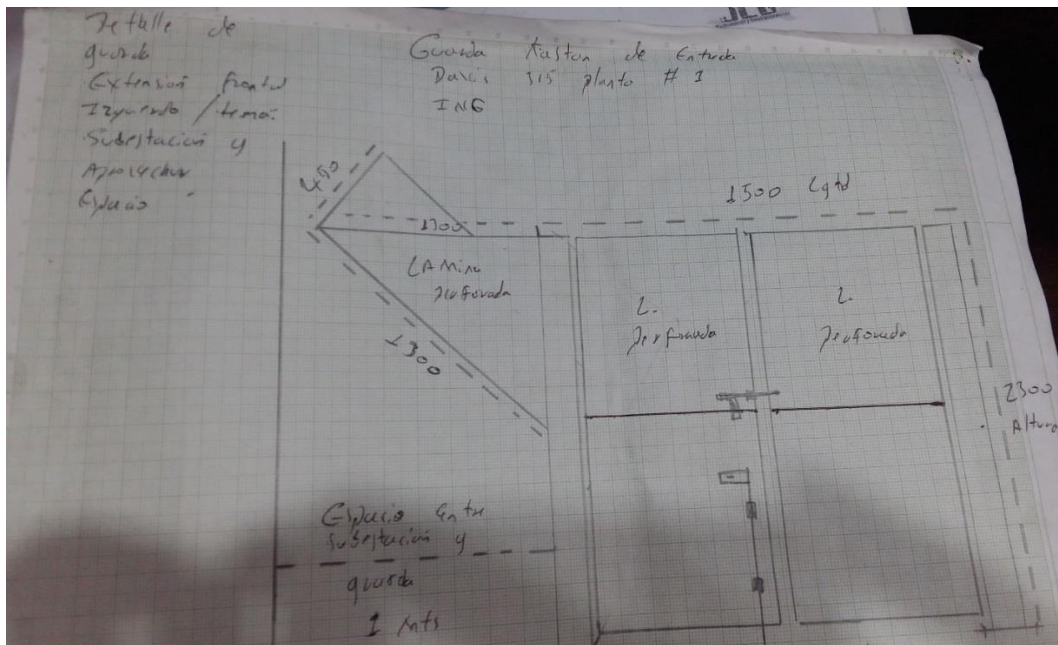 Detalle de
guarda
Extension frontal
Izquierdo /
Substacion y
Aprovechar
Espacio
Guarda de Entrada
315 planta # 1
ING
JCG
450
1700
1500 Lgtd
Lamina
perforada
1300
2.
Perforada
2.
Perforada
2300
Altura
Espacio Entre
Substacion y
guarda
1 Mts